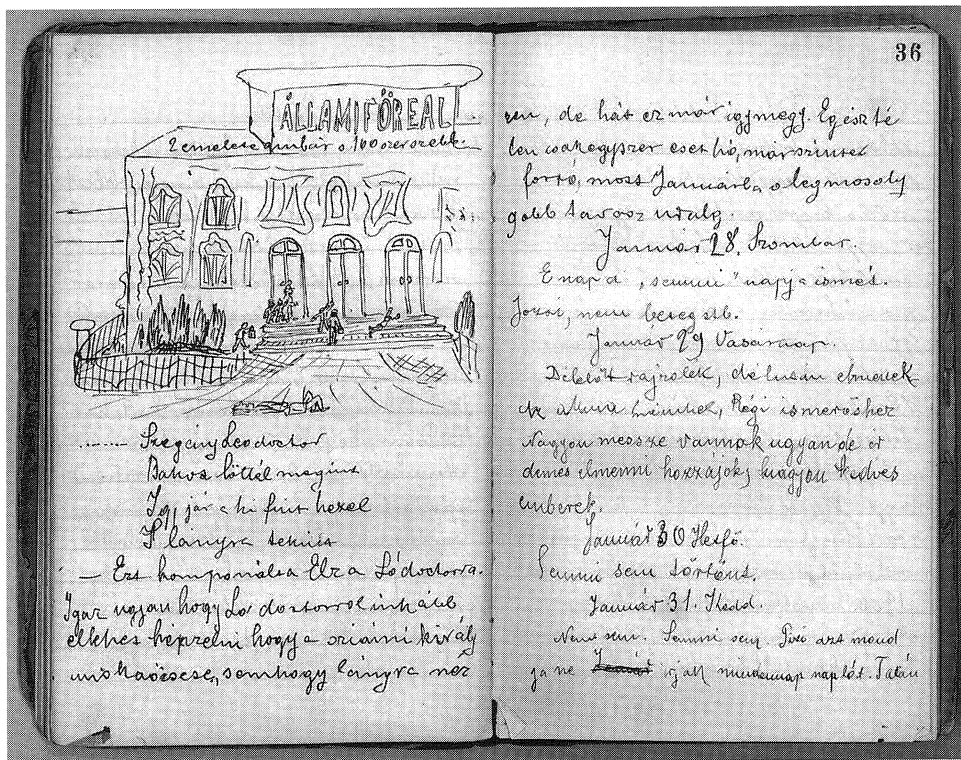 ÁLLAMI FŐREAL
2 emelete ámbár 100szor szebb.
------ Szegény Leo doctor
Bakot lőttél megint
Igy jár a ki fiút hezel
S lányra tekint
— Ezt komponálta Elza Ló doctorra.
Igaz ugyan hogy Ló doctorról inkább
elhehet kepzelni hogy a sziámi király
unokaöcsese, semhogy lányra néz
36
zen, de hát ez már igy megy. Egész té
len csak egyszer eset hó, már szintet
forró, most Januárba a legmosoly
góbb tavasz uralg.
Január 28. Szombat.
E nap a „semmi" napja ismét.
Józsi, nem beteg stb.
Január 29 Vasárnap.
Délelőt rajzolok, délután elmenek
Az Mariskával, Régi ismerőshez
Nagyon messze vannak ugyan de ér
demes elmenni hozzájok, nagyon kedves
emberek.
Január 30 Hetfő.
Semmi sem törtönt.
Január 31. Kedd.
Nem sem. Semmi sem. Pixi azt mond
ja ne Január irjak mindennap naplót. Talán